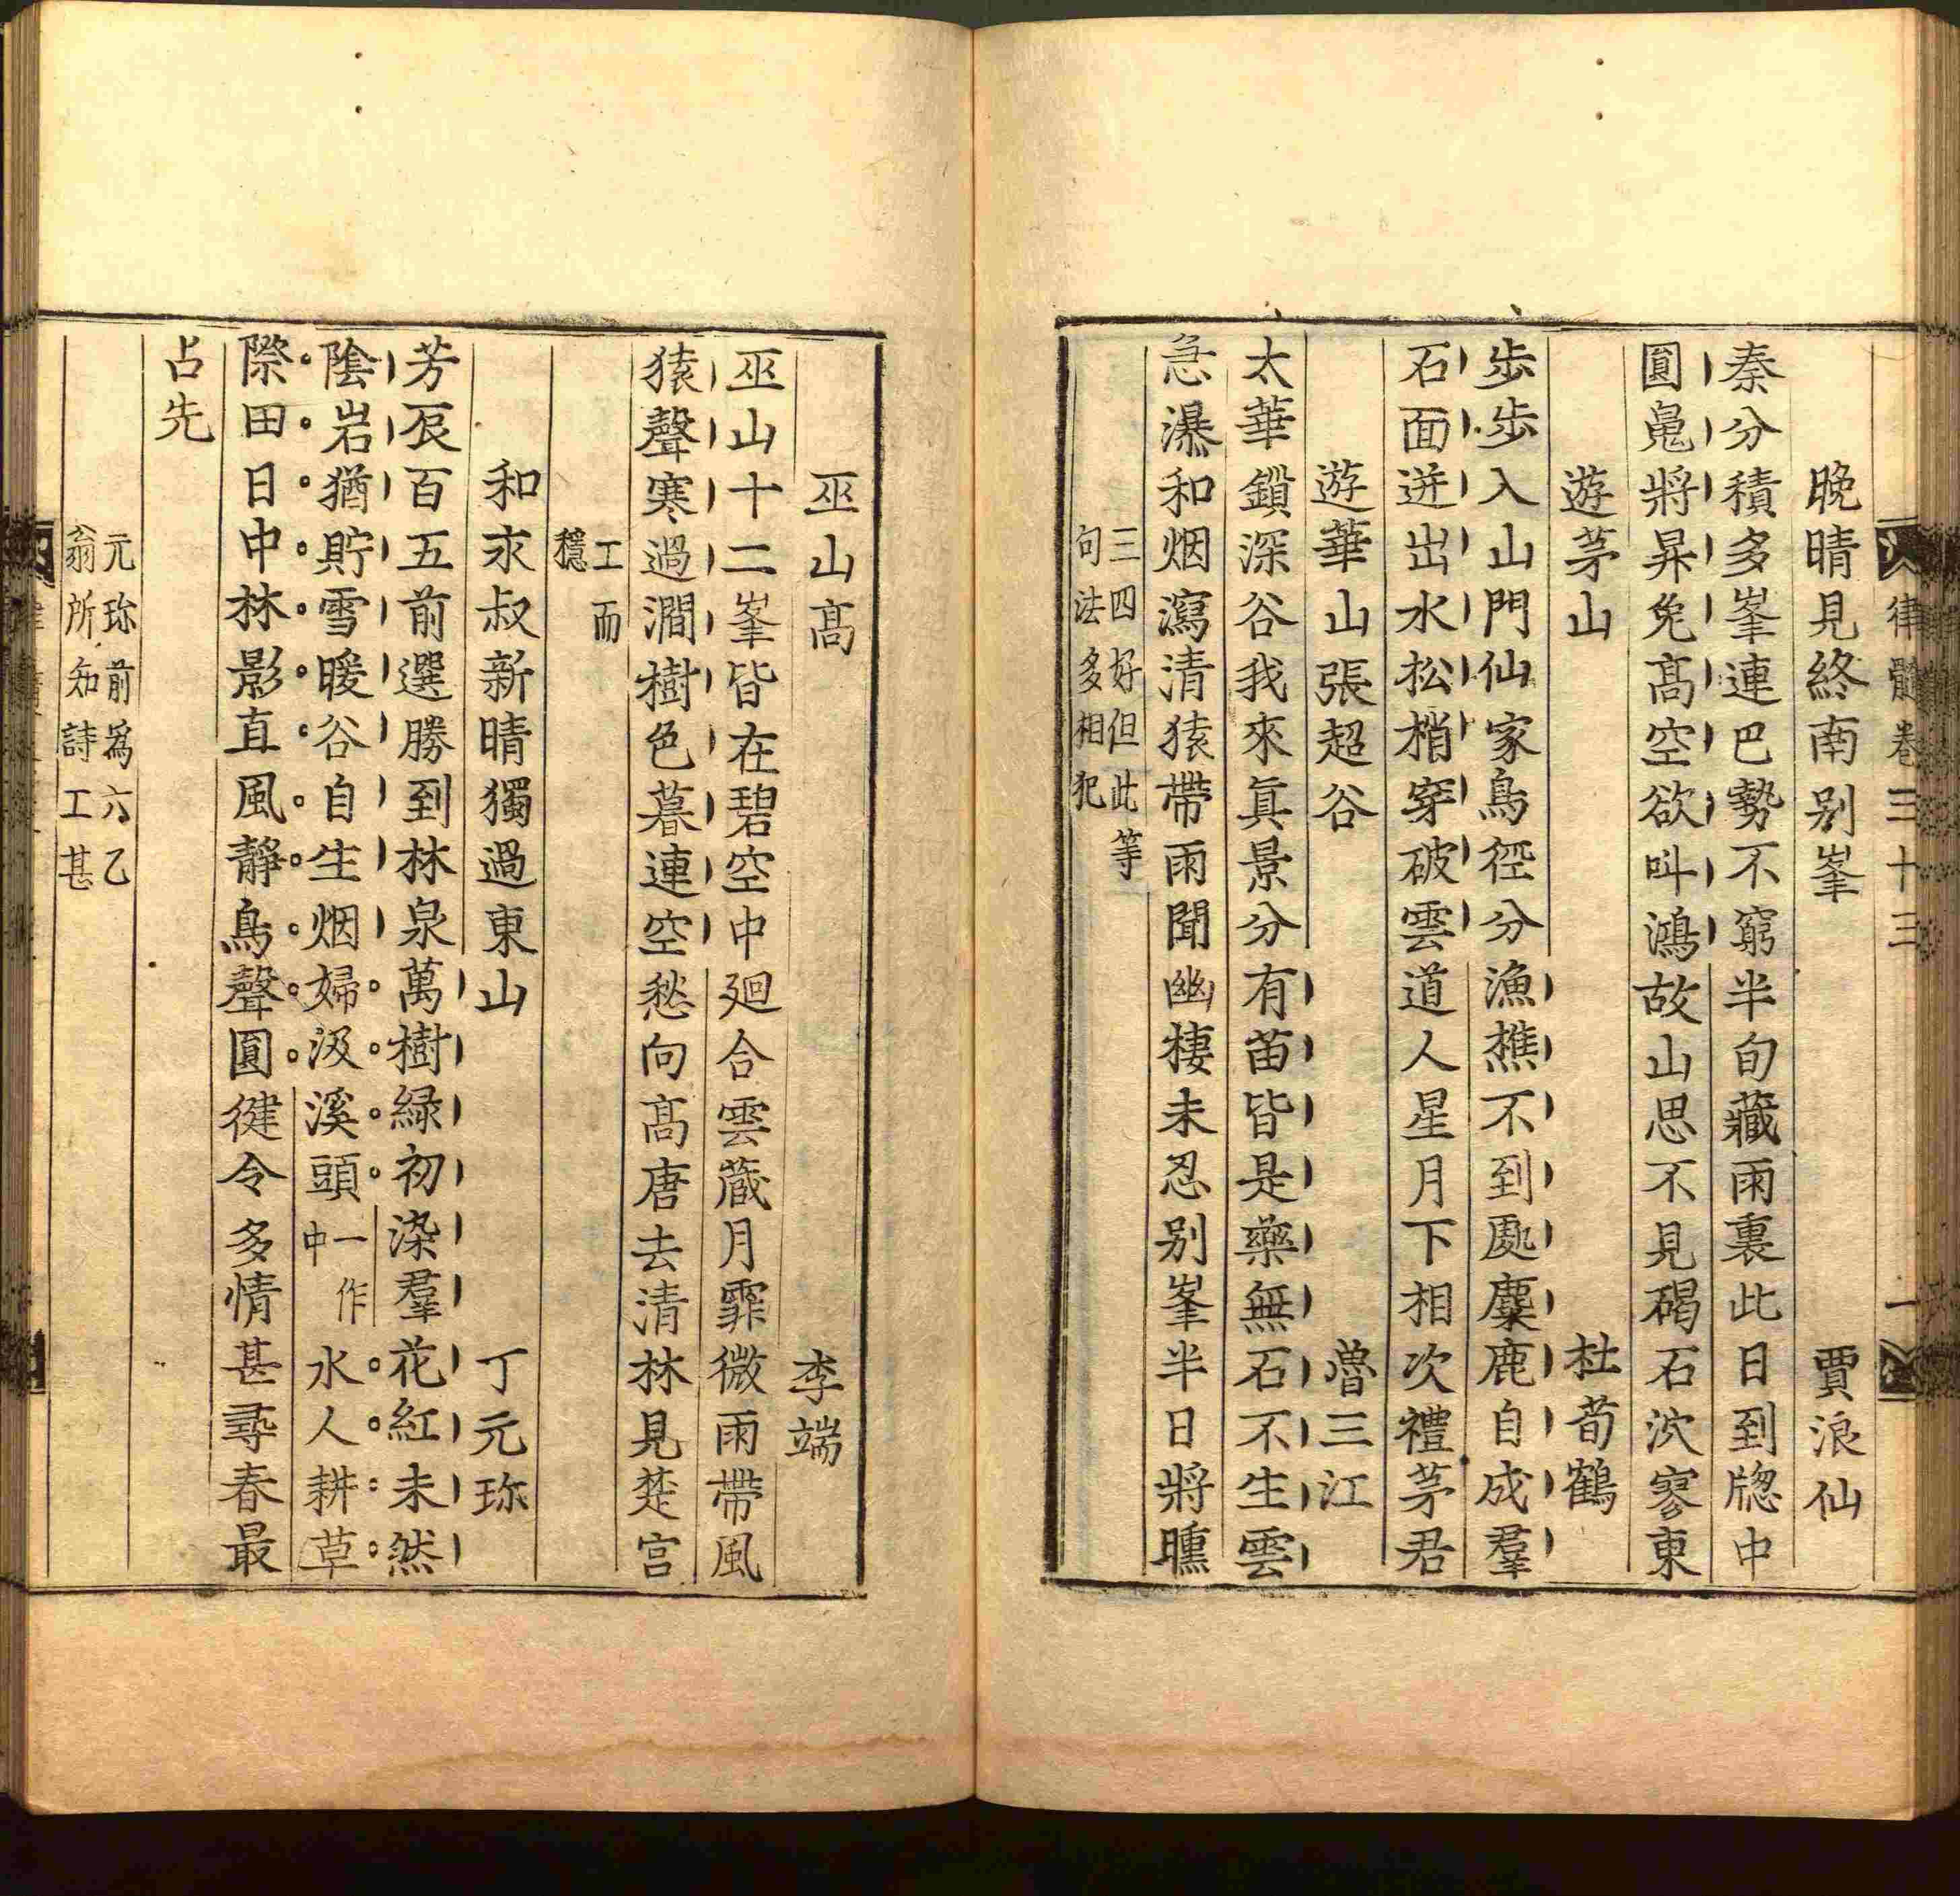 律髓卷三十三 一
晚晴見終南别峯 賈浪仙
秦分積多峯連巴勢不窮半旬藏雨裏此日到牕中
圓䰟將昇兔高空欲叫鴻故山思不見碣石泬寥東
遊茅山 杜荀鶴
步步入山門仙家鳥徑分漁樵不到處麋鹿自成羣
石面迸出水松梢穿破雲道人星月下相次禮茅君
遊華山張超谷 魯三江
太華鎖深谷我來眞景分有苗皆是藥無石不生雲
急瀑和烟瀉清猿帶雨聞幽棲未忍别峯半日將曛
三四好但此等
句法多相犯
巫山高 李端
巫山十二峯皆在碧空中廻合雲藏月霏微雨帶風
猿聲寒過澗樹色暮連空愁向高唐去清林見楚宮
工而
穩
和永叔新晴獨過東山 丁元珍
芳辰百五前選勝到林泉萬樹緑初染羣花紅未然
陰岩猶貯雪暖谷自生烟婦汲溪頭一作中水人耕草
際田日中林影直風靜鳥聲圓徤令多情甚尋春最
占先
元珍前爲六乙
翁所知詩工甚